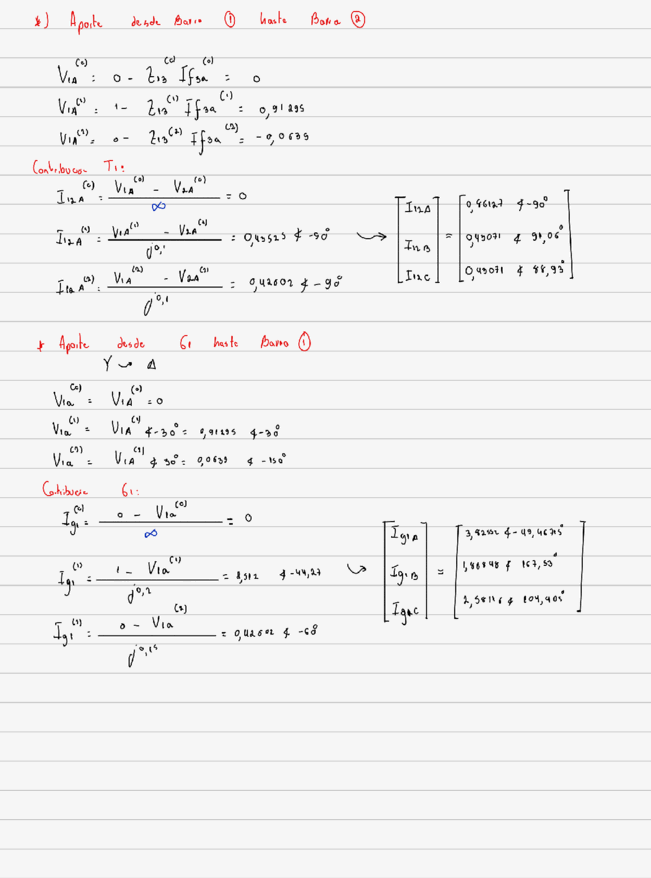 *) Aporte desde Barra ① hasta Barra ②
V1A^(0) = 0 - Z13^(0) If3a^(0) = 0
V1A^(1) = 1 - Z13^(1) If3a^(1) = 0,91295
V1A^(2) = 0 - Z13^(2) If3a^(2) = -0,0639
Contribucion T1:
I12A^(0) = (V1A^(0) - V2A^(0)) / ∞ = 0
I12A^(1) = (V1A^(1) - V2A^(1)) / j0,1 = ∡ -90°
I12A^(2) = (V1A^(2) - V2A^(2)) / j0,1 = 0,42602 ∡ -90°
→ [I12A I12B I12C] = [∡ -90° 0,43071 ∡ 91,06° 0,43071 ∡ 88,93°]
* Aporte desde G1 hasta Barra ①
Y → Δ
V1a^(0) = V1A^(0) = 0
V1a^(1) = V1A^(1) ∡ -30° = 0,91295 ∡ -30°
V1a^(2) = V1A^(2) ∡ 30° = 0,0639 ∡ -150°
G1:
Ig1^(0) = (0 - V1a^(0)) / ∞ = 0
Ig1^(1) = (1 - V1a^(1)) / j0,2 = ∡ -44,27
Ig1^(2) = (0 - V1a^(2)) / j0,15 = 0,42602 ∡ -60°
→ [Ig1A Ig1B Ig1C] = [∡ ∡ 167,53° ∡ 104,905°]